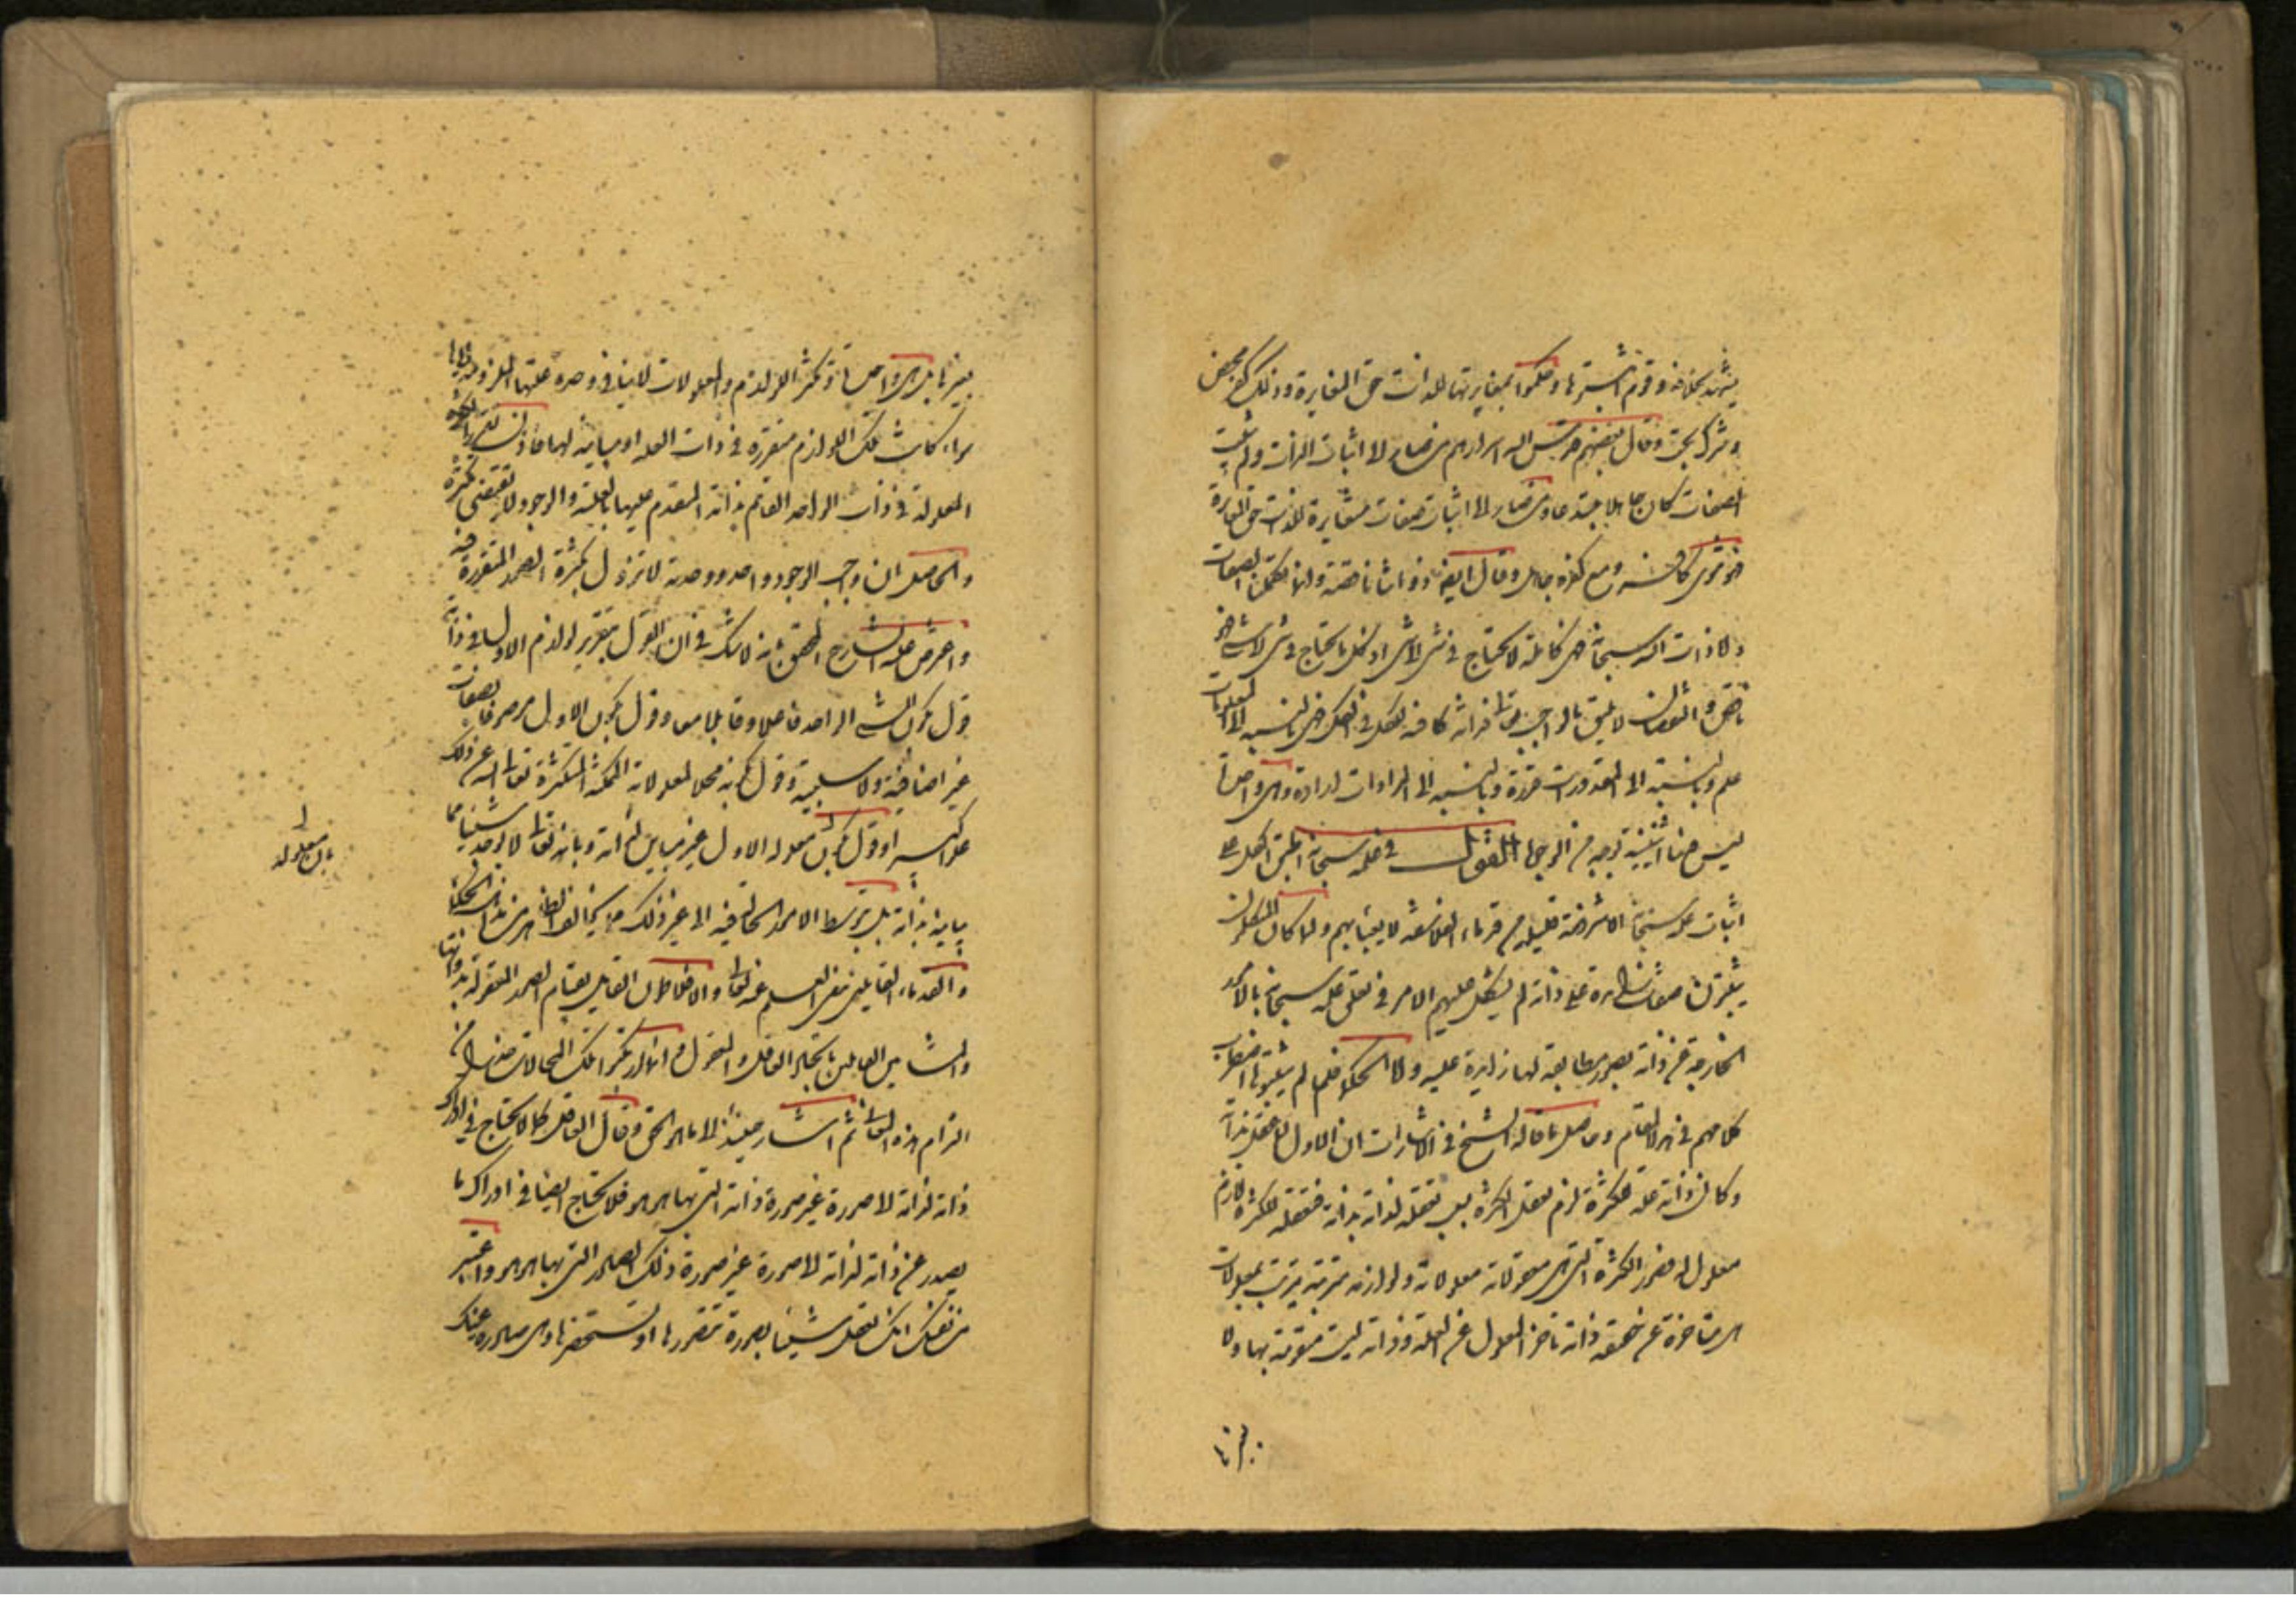 يشهد بخلافه وقوم اثبتوها وحكموا بمغايرتها للذات حق المغايرة وذلك كفر محض
وشرك بحت وقال بعضهم قدس الله اسرارهم من صار الى اثبات الذات ولم يثبت
الصفات كان جاهلا مبتدعا ومن صار الى اثبات صفات مغايرة للذات حق المغايرة
فهو ثنوي كافر ومع كفره جاهل وقال ايضا ذواتنا ناقصة وانما تكملها الصفات
واما ذات الله سبحانه فهي كاملة لا تحتاج في شيء الى شيء اذ كل ما يحتاج في شيء الى شيء فهو
ناقص والنقصان لا يليق بالواجب تعالى فذاته كافية للكل في الكل فهي بالنسبة الى المعلومات
علم وبالنسبة الى المقدورات قدرة وبالنسبة الى المرادات ارادة وهي واحدة
ليس فيها اثنينية بوجه من الوجوه القول في علمه سبحانه اطبق الكل على
اثبات علمه سبحانه الا شرذمة قليلة من قدماء الفلاسفة لا يعبأ بهم ولما كان المتكلمون
يثبتون صفات زائدة على ذاته لم يشكل عليهم الامر في تعلق علمه سبحانه بالامور
الخارجة عن ذاته بصور مطابقة لها زائدة عليه واما الحكماء فلما لم يثبتوها اضطرب
كلامهم في هذا المقام وحاصل ما قاله الشيخ في الاشارات ان الاول لما عقل ذاته بذاته
وكان ذاته علة للكثرة لزم تعقل الكثرة بسبب تعقله لذاته بذاته فتعقله للكثرة لازم
معلول له فصور الكثرة التي هي معقولاته معلولاته ولوازمه مترتبة ترتب المعلولات
فهي متاخرة عن حقيقة ذاته تاخر المعلول عن العلة وذاته ليست متقومة بها ولا
بغيرها
بغيرها بل هي واحدة وتكثر اللوازم والمعلولات لا ينافي وحدة علتها الملزومة اياها
سواء كانت تلك اللوازم متقررة في ذات العلة او مباينة لها فاذن تقرر الكثرة
المعلولة في ذات الواحد القائم بذاته المتقدم عليها بالعلية والوجود لا يقتضي تكثره
والحاصل ان واجب الوجود واحد ووحدته لا تزول بكثرة الصور المتقررة فيه
واعترض عليه الشارح المحقق بانه لا شك في ان القول بتقرير لوازم الاول في ذاته
قول بكون الشيء الواحد فاعلا وقابلا معا وقول بكون الاول موصوفا بصفات
غير اضافية ولا سلبية وقول بكونه محلا لمعلولاته الممكنة المتكثرة تعالى الله عن ذلك
علوا كبيرا وقول بكون معلوله الاول غير مباين لذاته وبانه تعالى لا يوجد شيئا مما
يباينه بذاته بل بتوسط الامور الحالة فيه الى غير ذلك مما يخالف الظاهر من مذاهب الحكماء
والقدماء القائلين بنفي العلم عنه تعالى وافلاطون القائل بقيام الصور المعقولة بذواتها
والمشائين القائلين باتحاد العاقل والمعقول انما ارتكبوا تلك المحالات حذرا من
التزام هذه المعاني ثم اشار حينئذ الى ما هو الحق وقال العاقل كما لا يحتاج في ادراك
ذاته لذاته الى صورة غير صورة ذاته التي بها هو هو فلا يحتاج ايضا في ادراك ما
يصدر عن ذاته لذاته الى صورة غير صورة ذلك الصادر التي بها هو هو واعتبر
من نفسك انك تعقل شيئا بصورة تتصورها او تستحضرها فهي صادرة عنك
بان معلوله